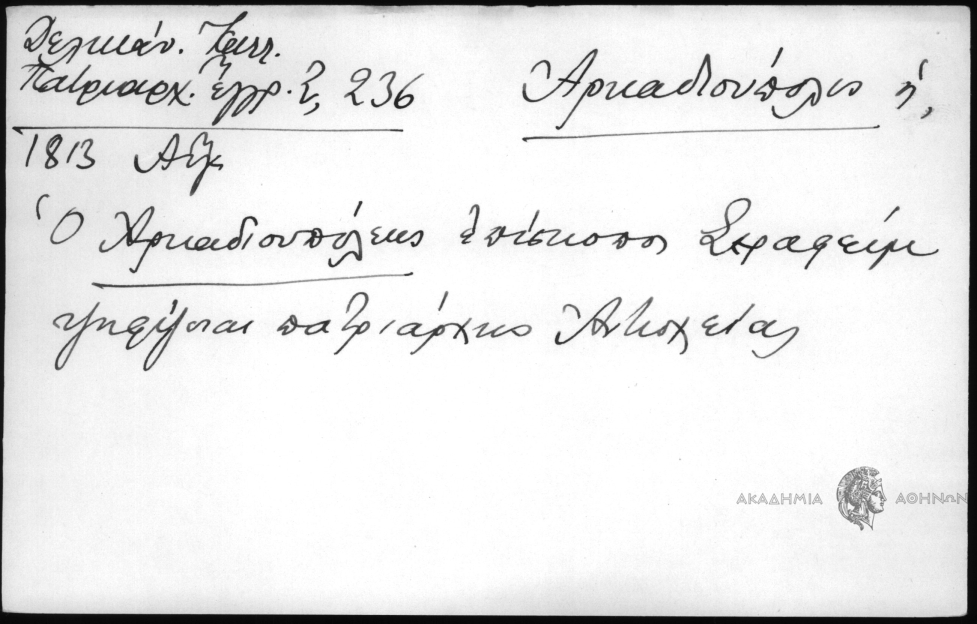 Δελικάν. Καλλ.
Πατριαρχ. ἔγγρ. 2, 236
Ἀρκαδιούπολις ἡ,
1813 Αὔγ.
Ὁ Ἀρκαδιουπόλεως ἐπίσκοπος Σεραφείμ
ψηφίζεται πατριάρχης Ἀντιοχείας
ΑΚΑΔΗΜΙΑ ΑΘΗΝΩΝ